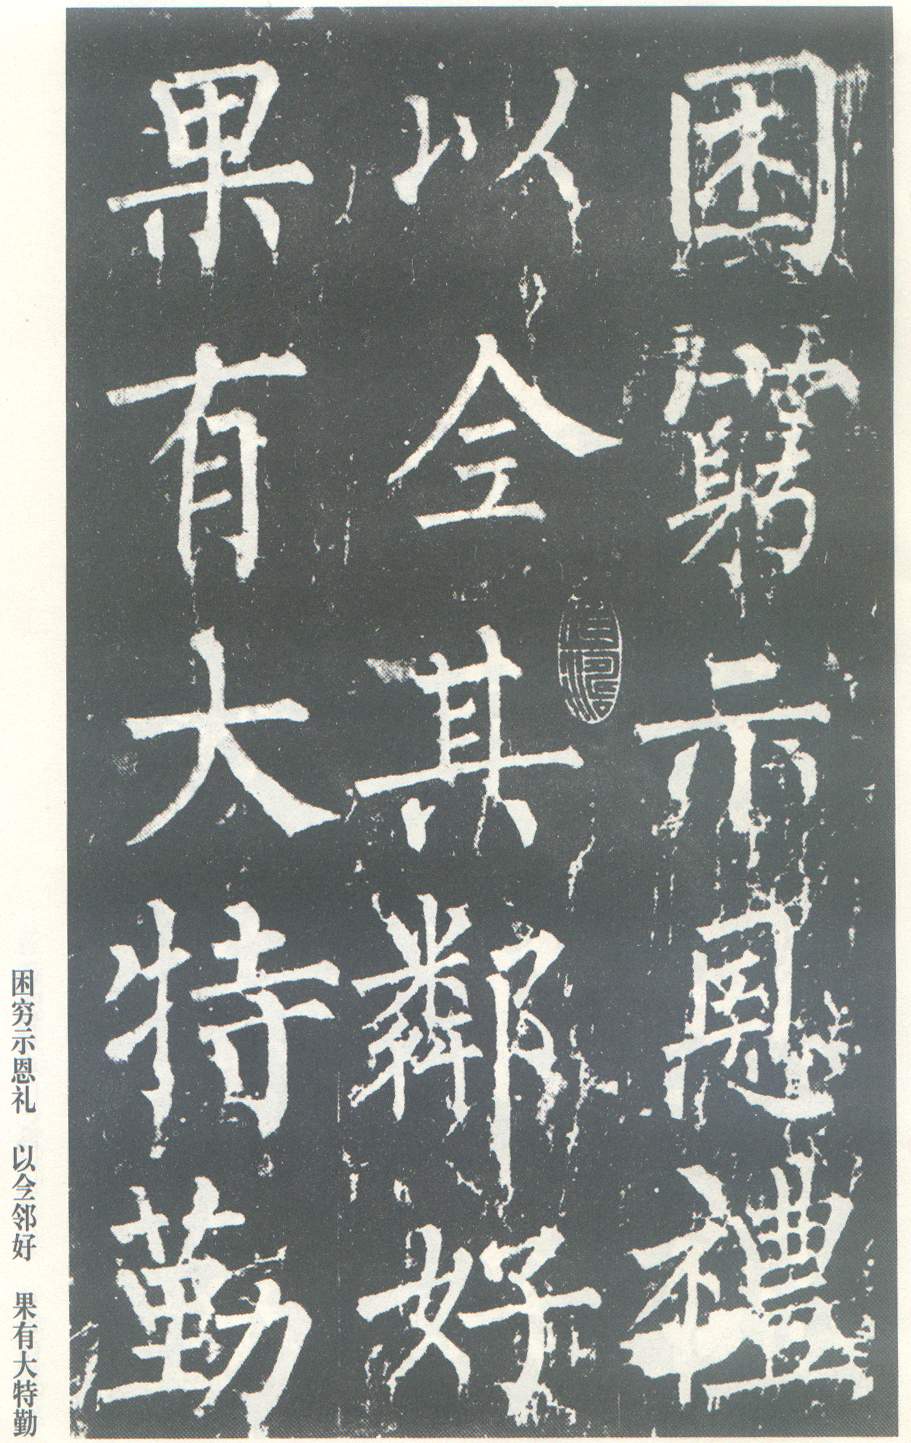 困窮示恩禮
以仝其鄰好
果有大特勤
困穷示恩礼　以仝邻好　果有大特勤